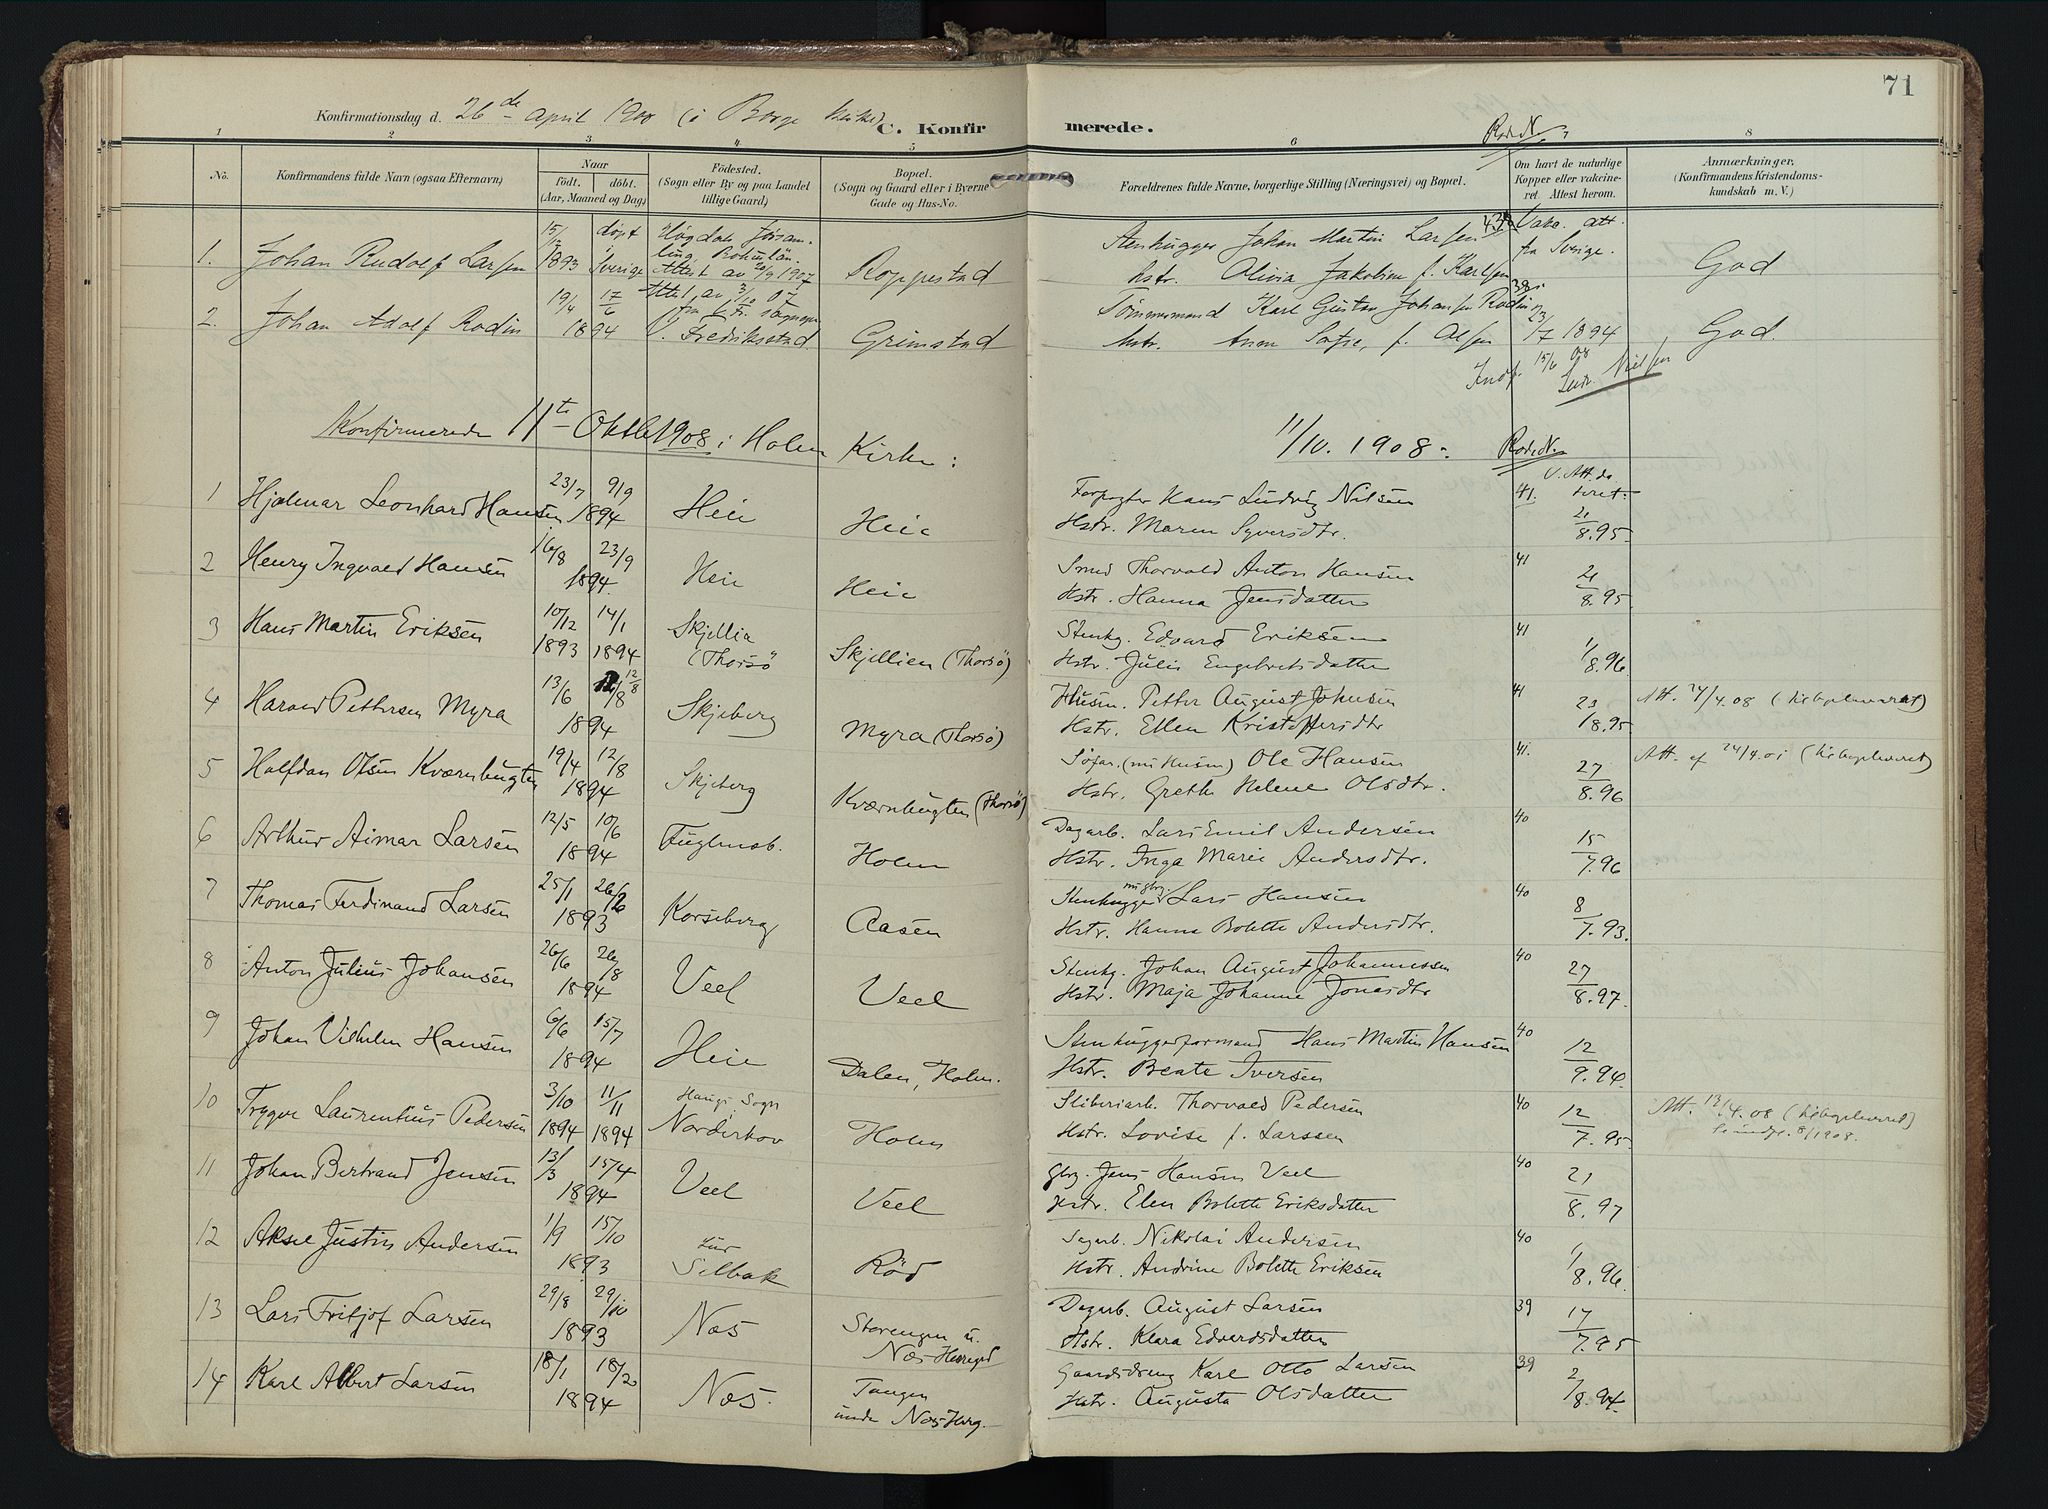 71
Konfirmationsdag d. 26de April 1908 (i Borge Kirke)
C. Konfirmerede.
1 2 3 4 5 6 7 8
No.
Konfirmandens fulde Navn (ogsaa Efternavn)
Naar
født. døbt.
(Aar, Maaned og Dag)
Fødested.
(Sogn eller By og paa Landet
tillige Gaard)
Bopæl.
(Sogn og Gaard eller i Byerne
Gade og Hus-No.
Forældrenes fulde Navne, borgerlige Stilling (Næringsvei) og Bopæl.
Om havt de naturlige
Kopper eller vakcine-
ret. Attest herom.
Anmærkninger.
(Konfirmandens Kristendoms-
kundskab m. V.)
1. Johan Rudolf Larsen 15/12 1893 døpt i Sverige Høgdals försam-
ling, Bohuslän. Attest av 20/9 1907 Roppestad Stenhugger Johan Martin Larsen 43
Hstr. Olivia Jakobine f. Karlsen Vakc. att. fra Sverige. God
2. Johan Adolf Rodin 19/4 17/6 1894 Attest av 3/10 07
Ø. Fredriksstad Grimstad Tømmermand Karl Gustav Johansen Rodin 39
Hstr. Anna Sofie, f. Olsen 23/7 1894 God.
Indf. 15/6 08 Nielsen
Konfirmerede 11te Oktbr 1908 i Holm Kirke:
11/10. 1908.
1 Hjalmar Leonhard Hansen 23/7 9/9 1894 Heie Heie Forpagter Hans Ludvig Nilsen
Hstr. Maren Syversdtr. 41. 21/8.95
2 Henry Ingvald Hansen 16/8 23/9 1894. Heie Heie Smed Thorvald Anton Hansen
Hstr. Hanna Jensdatter 41 21/8.95
3 Hans Martin Eriksen 10/12 1893 14/1 1894 Skjellia (Thorsø Skjellien (Thorsø) Stenhg. Edvard Eriksen
Hstr. Julie Engebretsdatter 41 1/8.96
4 Harald Pettersen Myra 13/6 12/8 1894 Skjeberg Myra (Thorsø) Husm. Petter August Johnsen
Hstr. Ellen Kristoffersdtr 41 23/8.95 Att. 24/4.08
5 Halfdan Olsen Kværnbugten 19/4 12/8 1894 Skjeberg Kværnbugten (Thorsø) Søfar. (nu Husm) Ole Hansen
Hstr. Grethe Helene Olsdtr. 41. 27/8.96 Att. af 24/4.01
6 Arthur Aimar Larsen 12/5 10/6 1894 Holm Dagarb. Lars Emil Andersen
Hstr. Inga Marie Andersdtr. 40 15/7.96
7 Thomas Ferdinand Larsen 25/1 26/2 1893 Korseberg Aasen Stenhugger nu gbrg. Lars Hansen
Hstr. Hanna Bolette Andersdtr. 40 8/7.93.
8 Anton Julius Johansen 26/6 26/8 1894 Veel Veel Stenhg. Johan August Johannessen
Hstr. Maja Johanne Jonasdtr 40 27/8.97.
9 Johan Vilhelm Hansen 6/6 15/7 1894 Heie Dalen, Holm. Stenhuggerformand Hans Martin Hansen
Hstr. Beate Iversen 40 12/9.94.
10 Trygve Laurentius Pedersen 3/10 1894 11/11 1894 Haugs Sogn
i Norderhov Holm Sliberiarb. Thorvald Pedersen
Hstr. Lovise f. Larssen 40 12/7.95 Att. 13/4.08
11 Johan Bertrand Jensen 13/3 15/4 1894 Veel Veel Gbrg. Jens Hansen Veel
Hstr. Elen Bolette Eriksdatter 40 21/8.97
12 Aksel Justin Andersen 1/9 15/10 1893 Selbak Rød Dagarb. Nikolai Andersen
Hstr. Andrine Bolette Eriksen 40 1/8.96.
13 Lars Fritjof Larsen 29/8 29/10 1893 Næs Storengen u.
Næs Herregd Dagarb. August Larsen
Hstr. Klara Edvardsdatter 39 17/7.95
14 Karl Albert Larsen 18/1 18/20 1894 Næs. Tangen
under Næs Herg. Gaardsdreng Karl Otto Larsen
Hstr. Augusta Olsdatter 39 2/8.94.